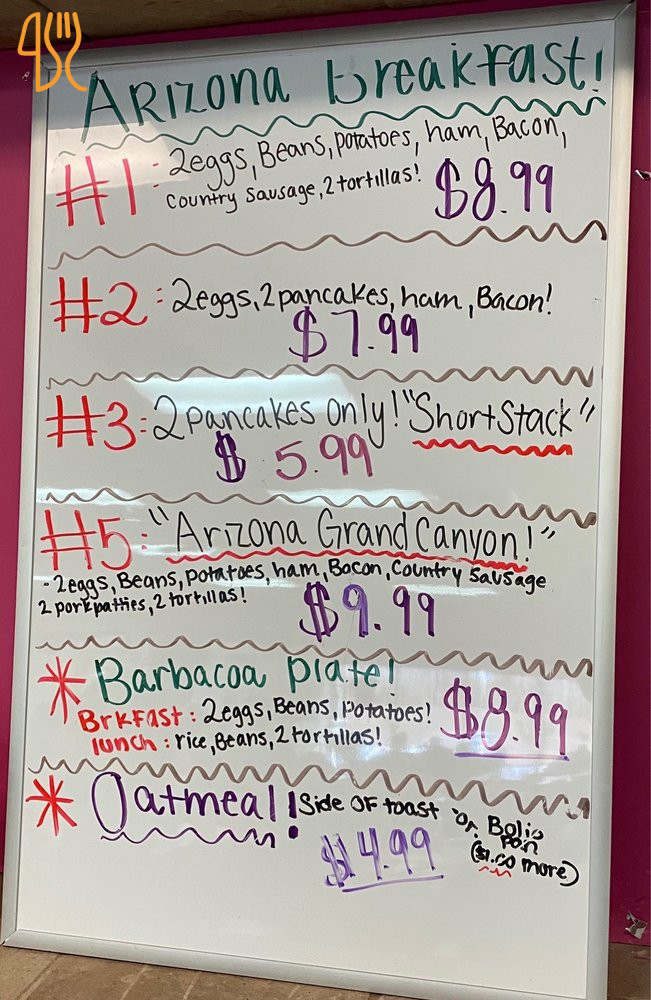 Arizona Breakfast!
#1: 2eggs, Beans, potatoes, ham, Bacon,
Country Sausage, 2 tortillas! $8.99
#2: 2eggs, 2 pancakes, ham, Bacon!
$7.99
#3: 2 pancakes only! "Short Stack"
$5.99
#5: "Arizona Grand Canyon!"
- 2eggs, Beans, Potatoes, ham, Bacon, Country Sausage
2 pork patties, 2 tortillas! $9.99
* Barbacoa plate!
Brkfast: 2eggs, Beans, Potatoes! $8.99
lunch: rice, Beans, 2 tortillas!
* Oatmeal! Side of toast or Bolio
pan
($1.00 more)
$4.99